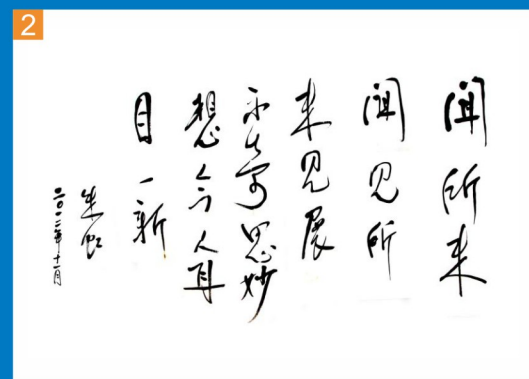 2
闻所未
闻见所
未见展
示出奇思妙
想令人耳
目一新
朱虹
二〇一二年十一月